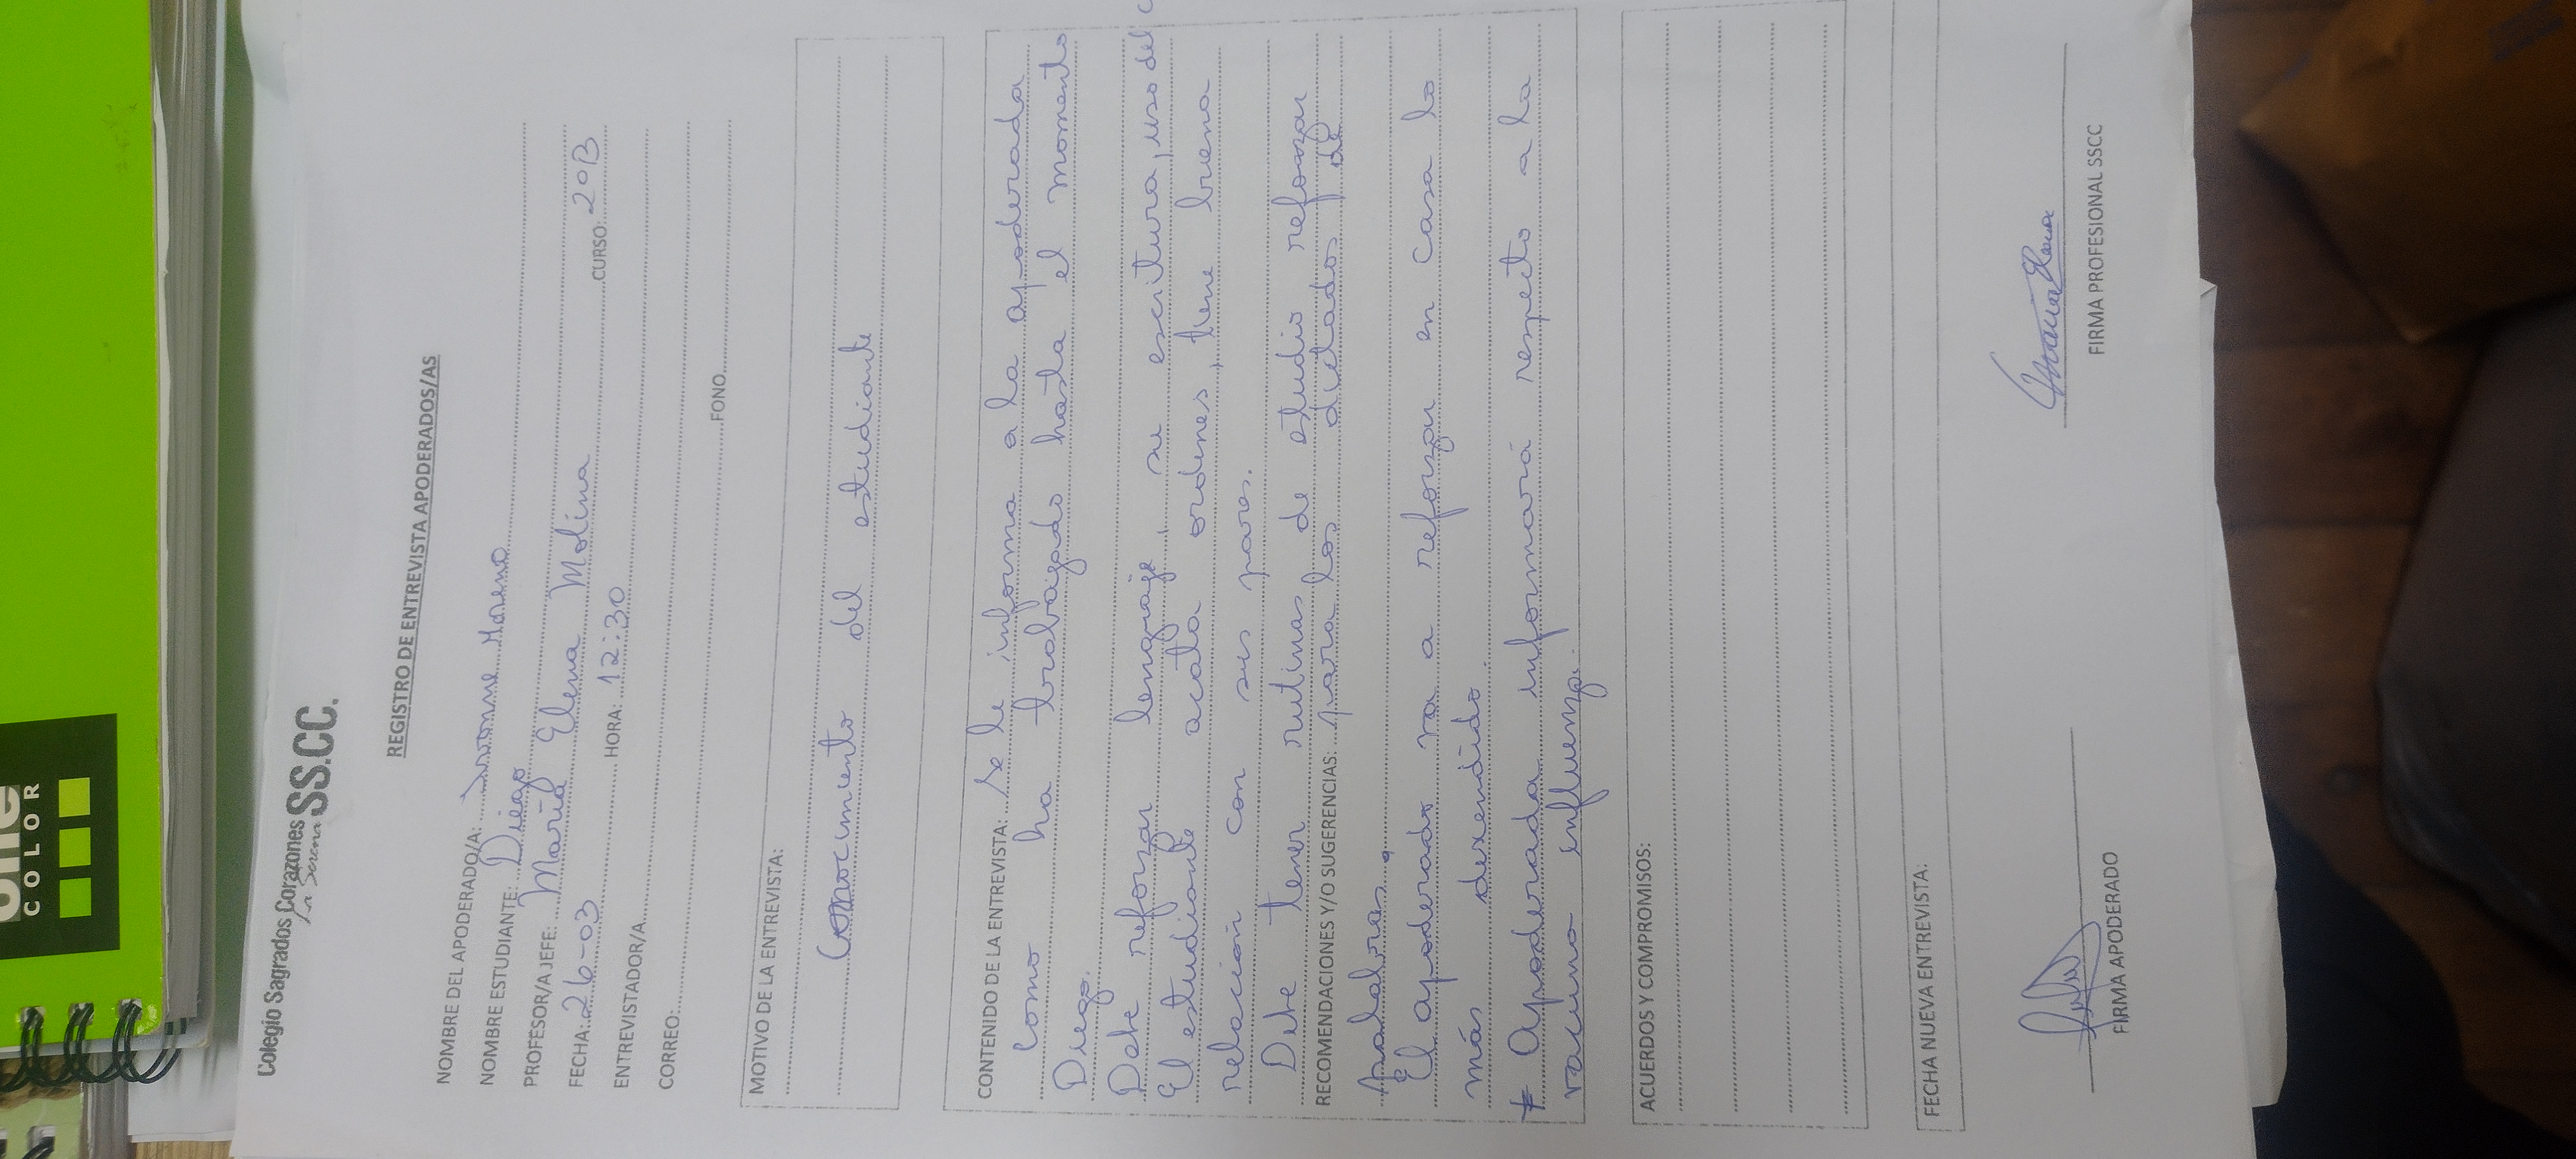 COLOR
Colegio Sagrados Corazones SS.CC.
La Serena
REGISTRO DE ENTREVISTA APODERADOS/AS
NOMBRE DEL APODERADO/A: Ivonne Moreno
NOMBRE ESTUDIANTE: Diego
PROFESOR/A JEFE: María Elena Molina
FECHA: 26-03 HORA: 12:30 CURSO: 2ºB
ENTREVISTADOR/A
CORREO: FONO
MOTIVO DE LA ENTREVISTA:
Conocimiento del estudiante
CONTENIDO DE LA ENTREVISTA: Se le informa a la apoderada
como ha trabajado hasta el momento
Diego.
Debe reforzar lenguaje, su escritura, uso del
El estudiante acata ordenes, tiene buena
relación con sus pares.
Debe tener rutinas de estudio reforzar
RECOMENDACIONES Y/O SUGERENCIAS: para los dictados de
palabras.
El apoderado va a reforzar en casa lo
más descendido.
* Apoderada informará respeto a la
vacuna influenza.
ACUERDOS Y COMPROMISOS:
FECHA NUEVA ENTREVISTA:
FIRMA APODERADO FIRMA PROFESIONAL SSCC